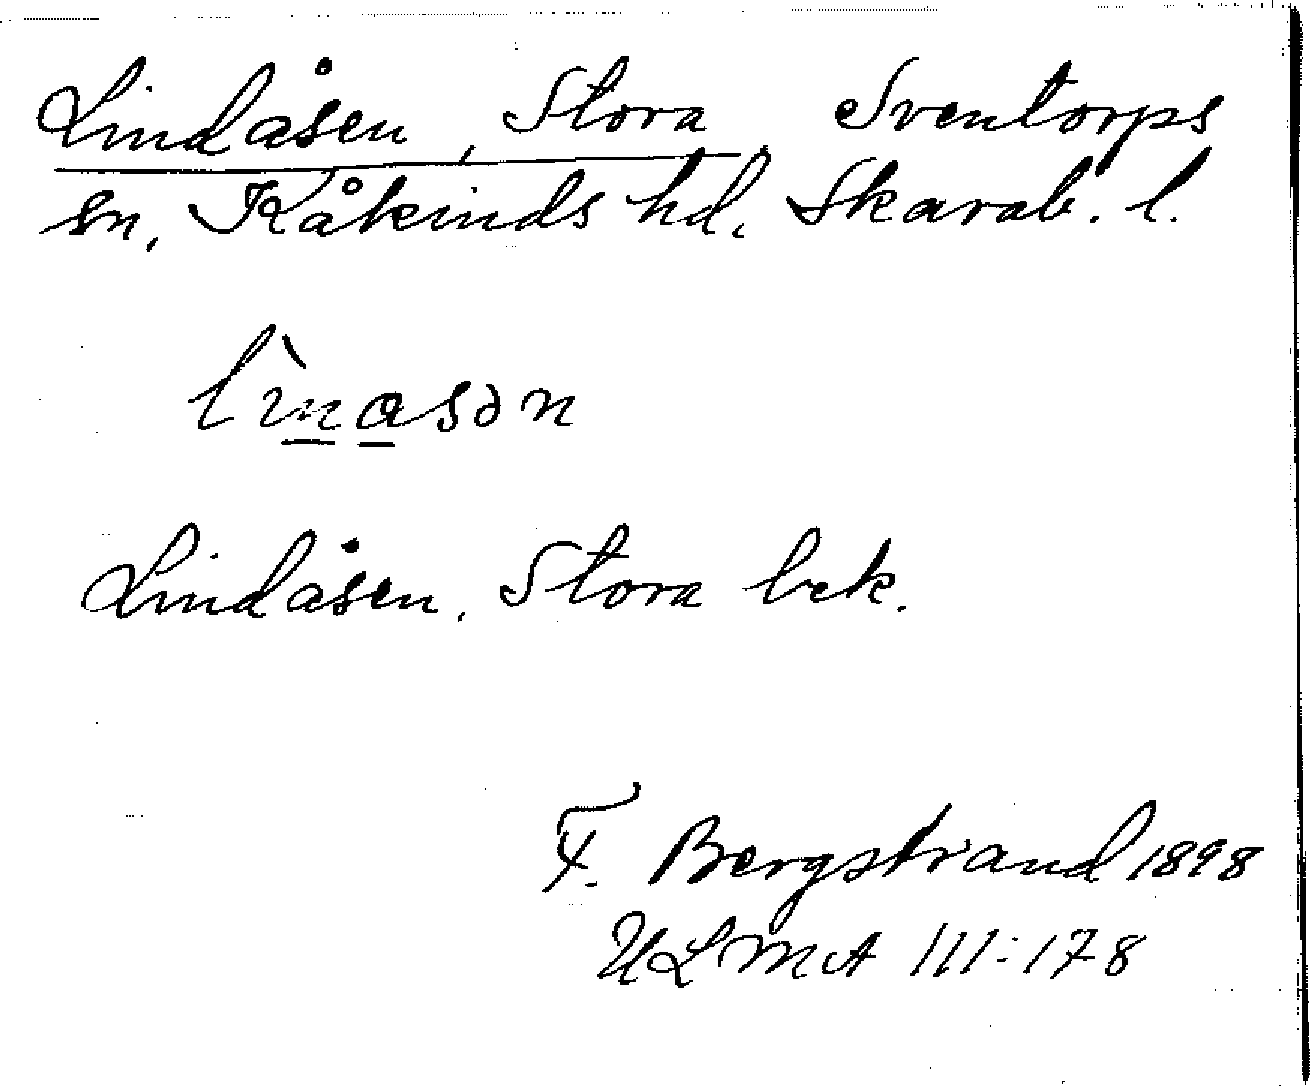 Lindåsen, Stora Sventorps
sn, Kåkinds hd, Skarab. l.
lìnasən
Lindåsen, Stora bek.
F. Bergstrand 1898
ULMA 111:178